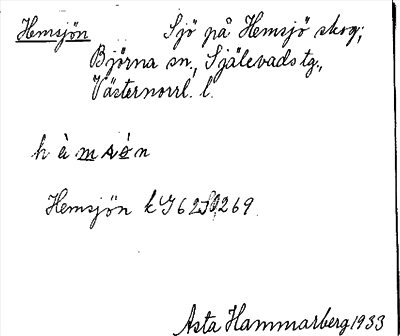 Hemsjön Sjö på Hemsjö skog;
Björna sn., Själevads tg.,
Västernorrl. l.
h è m s ö n
Hemsjön k I 62 269.
Asta Hammarberg 1933